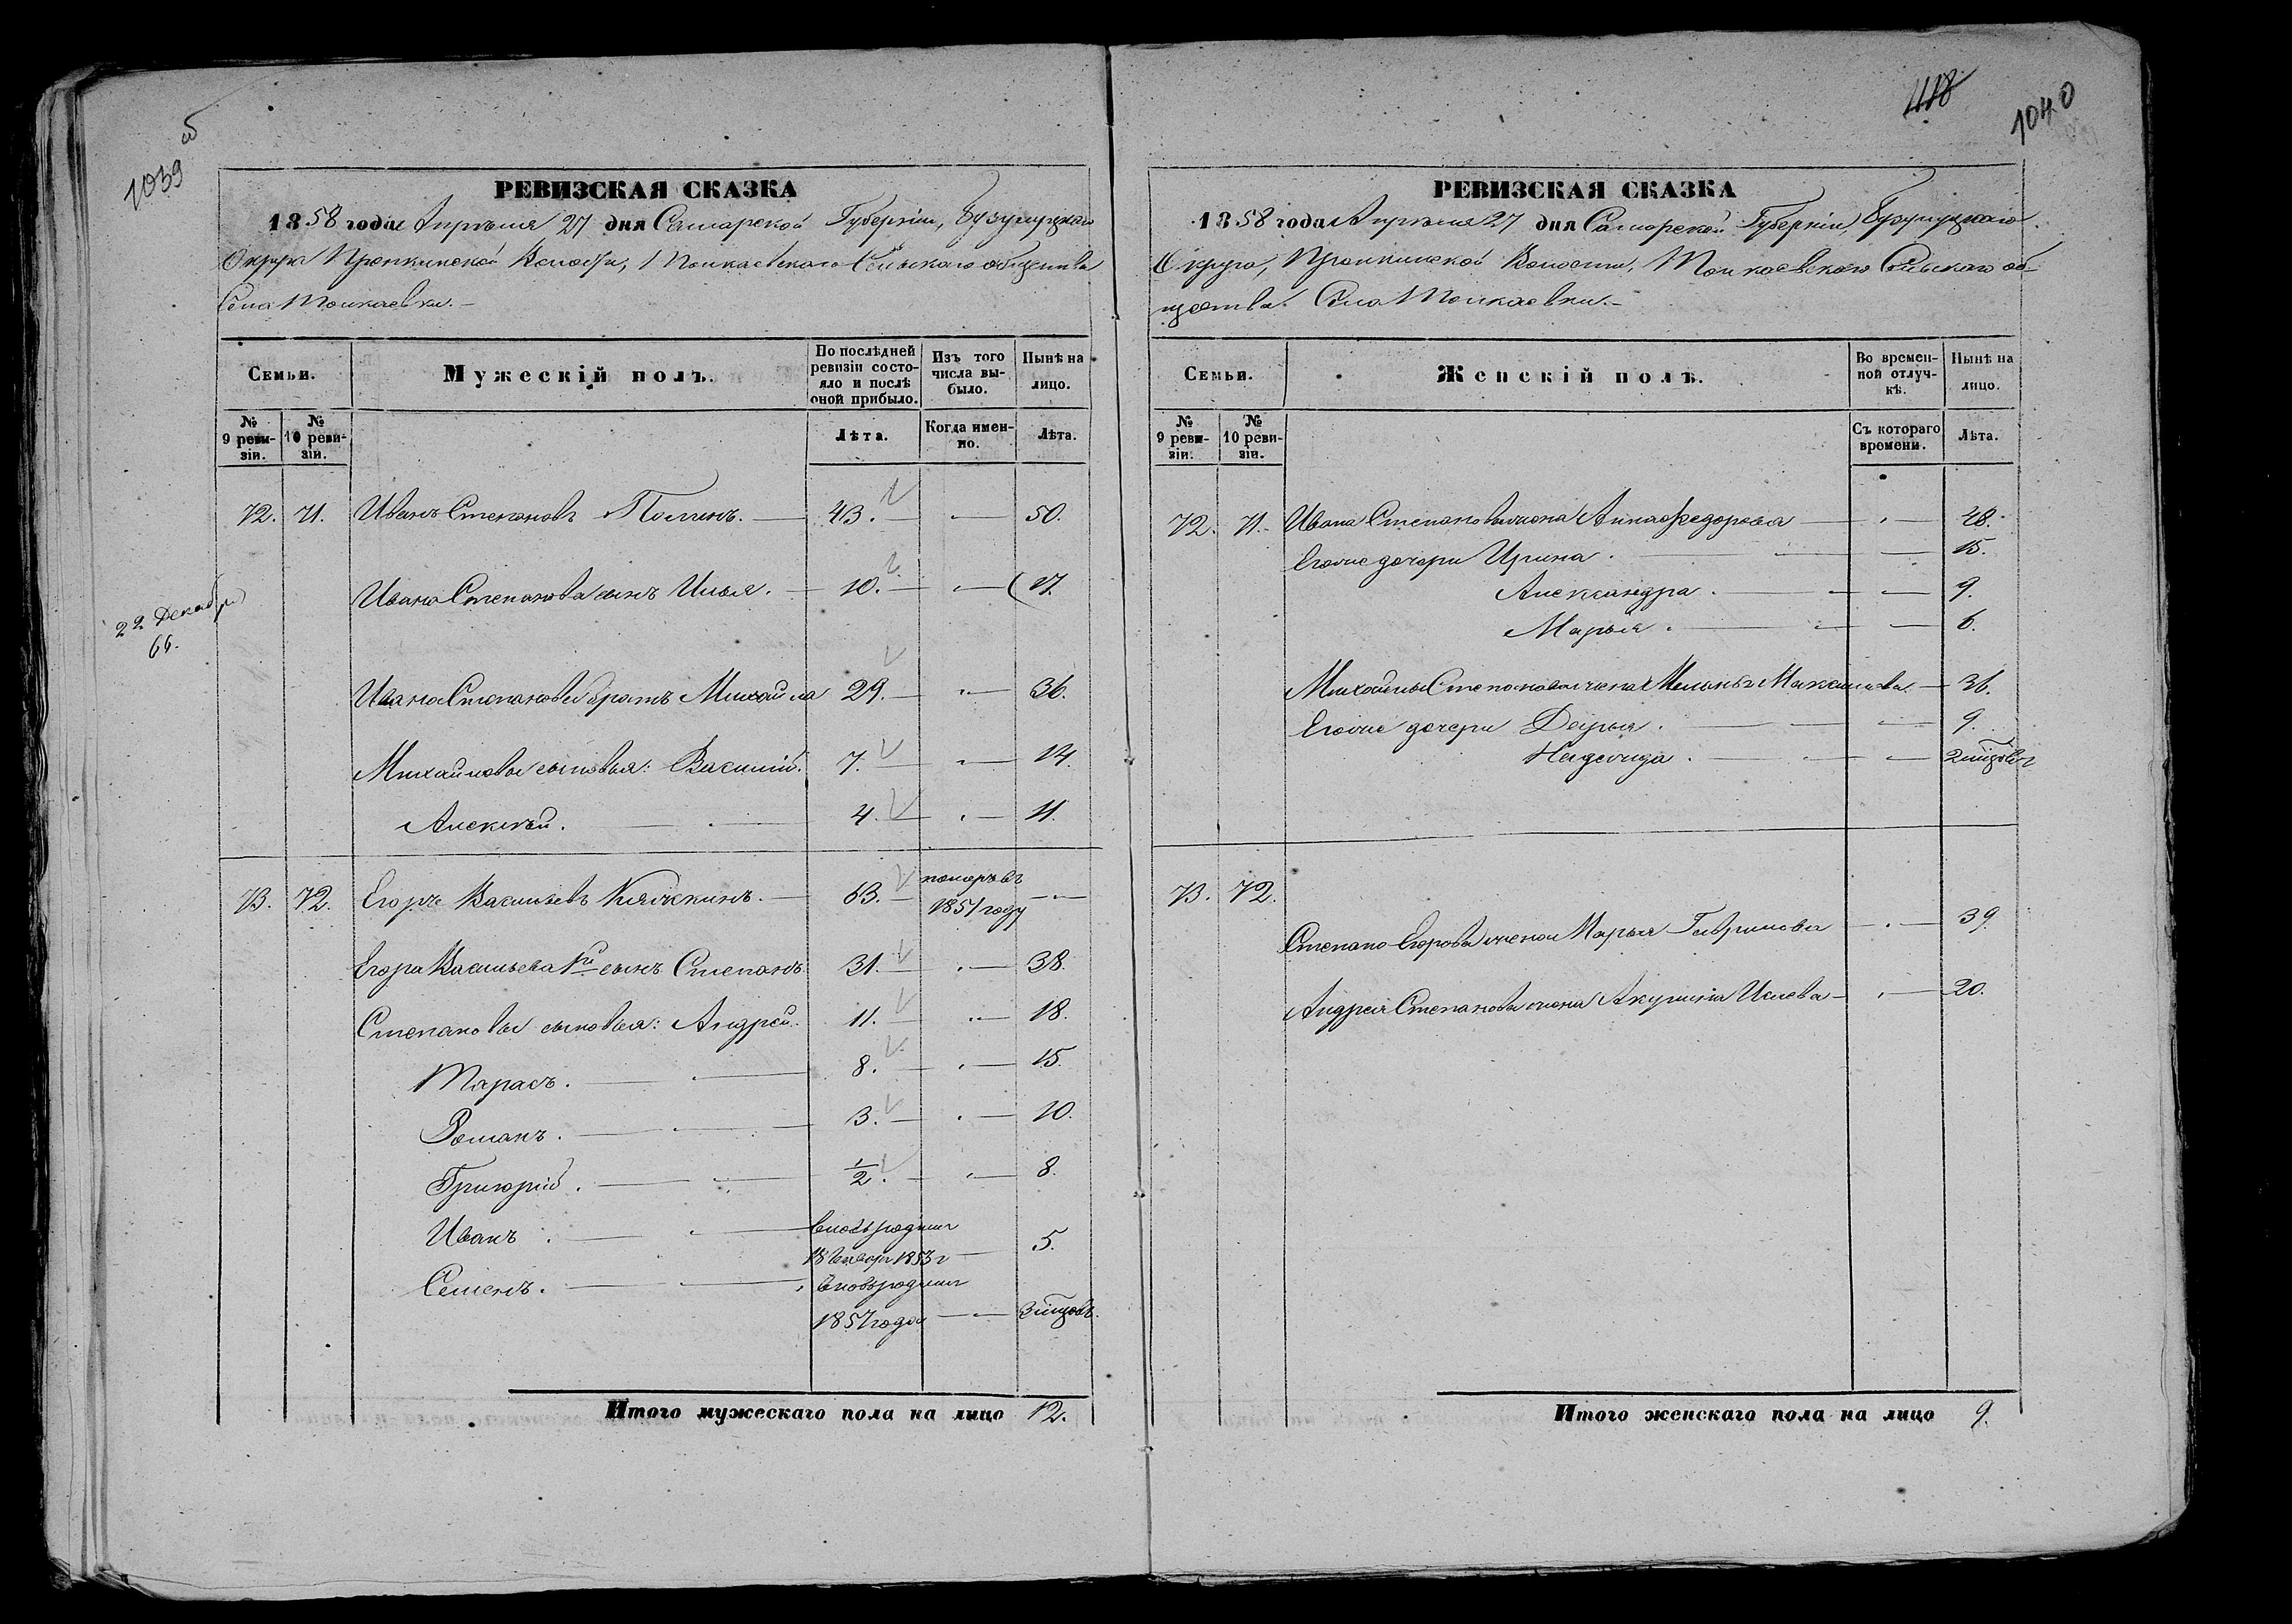 1039 об
РЕВИЗСКАЯ СКАЗКА
1858 года Апрѣля 27 дня Самарской Губерніи, Бузулукскаго
Округа Пронкинской Волости, Толкаевскаго Сельскаго общества
Села Толкаевки.
Семьи.
Мужескій полъ.
По послѣдней ревизіи состояло и послѣ оной прибыло.
Изъ того числа выбыло.
Нынѣ на лицо.
№ 9 ревизіи.
№ 10 ревизіи.
Лѣта.
Когда именно.
Лѣта.
72. 71. Иванъ Степановъ 43. 50.
Ивана Степанова сынъ Илья. 10. 17.
22 Декабря
66.
Ивана Степанова братъ Михайла 29. 36.
Михайловы сыновья: Василій. 7. 14.
Алексѣй. 4. 11.
73. 72. Егоръ Васильевъ Клячкинъ. 63. померъ въ
1851 году
Егора Васильева сынъ Степанъ 31. 38.
Степановы сыновья: Андрей. 11. 18.
Тарасъ. 8. 15.
Романъ. 3. 10.
Григорій. 1/2. 8.
Иванъ вновьродил
18 1853 г 5.
Семенъ. вновьродил
1857 года 3
Итого мужескаго пола на лицо 12.
418
1040
РЕВИЗСКАЯ СКАЗКА
1858 года Апрѣля 27 дня Самарской Губерніи, Бузулукскаго
Округа, Пронкинской Волости, Толкаевскаго Сельскаго об-
щества. Села Толкаевки.
Семьи.
Женскій полъ.
Во временной отлучкѣ.
Нынѣ на лицо.
№ 9 ревизіи.
№ 10 ревизіи.
Съ котораго времени.
Лѣта.
72. 71. Ивана Степанова жена Анна Федорова 48.
Его же дочери Ирина. 15.
Александра. 9.
Марья. 6.
Михайлы Степанова жена Меланья Максимова. 36.
Его же дочери Дарья. 9.
Надежда. 2
73. 72.
Степана Егорова жена Марья Гаврилова 39.
Андрея Степанова жена Акулина 20.
Итого женскаго пола на лицо 9.